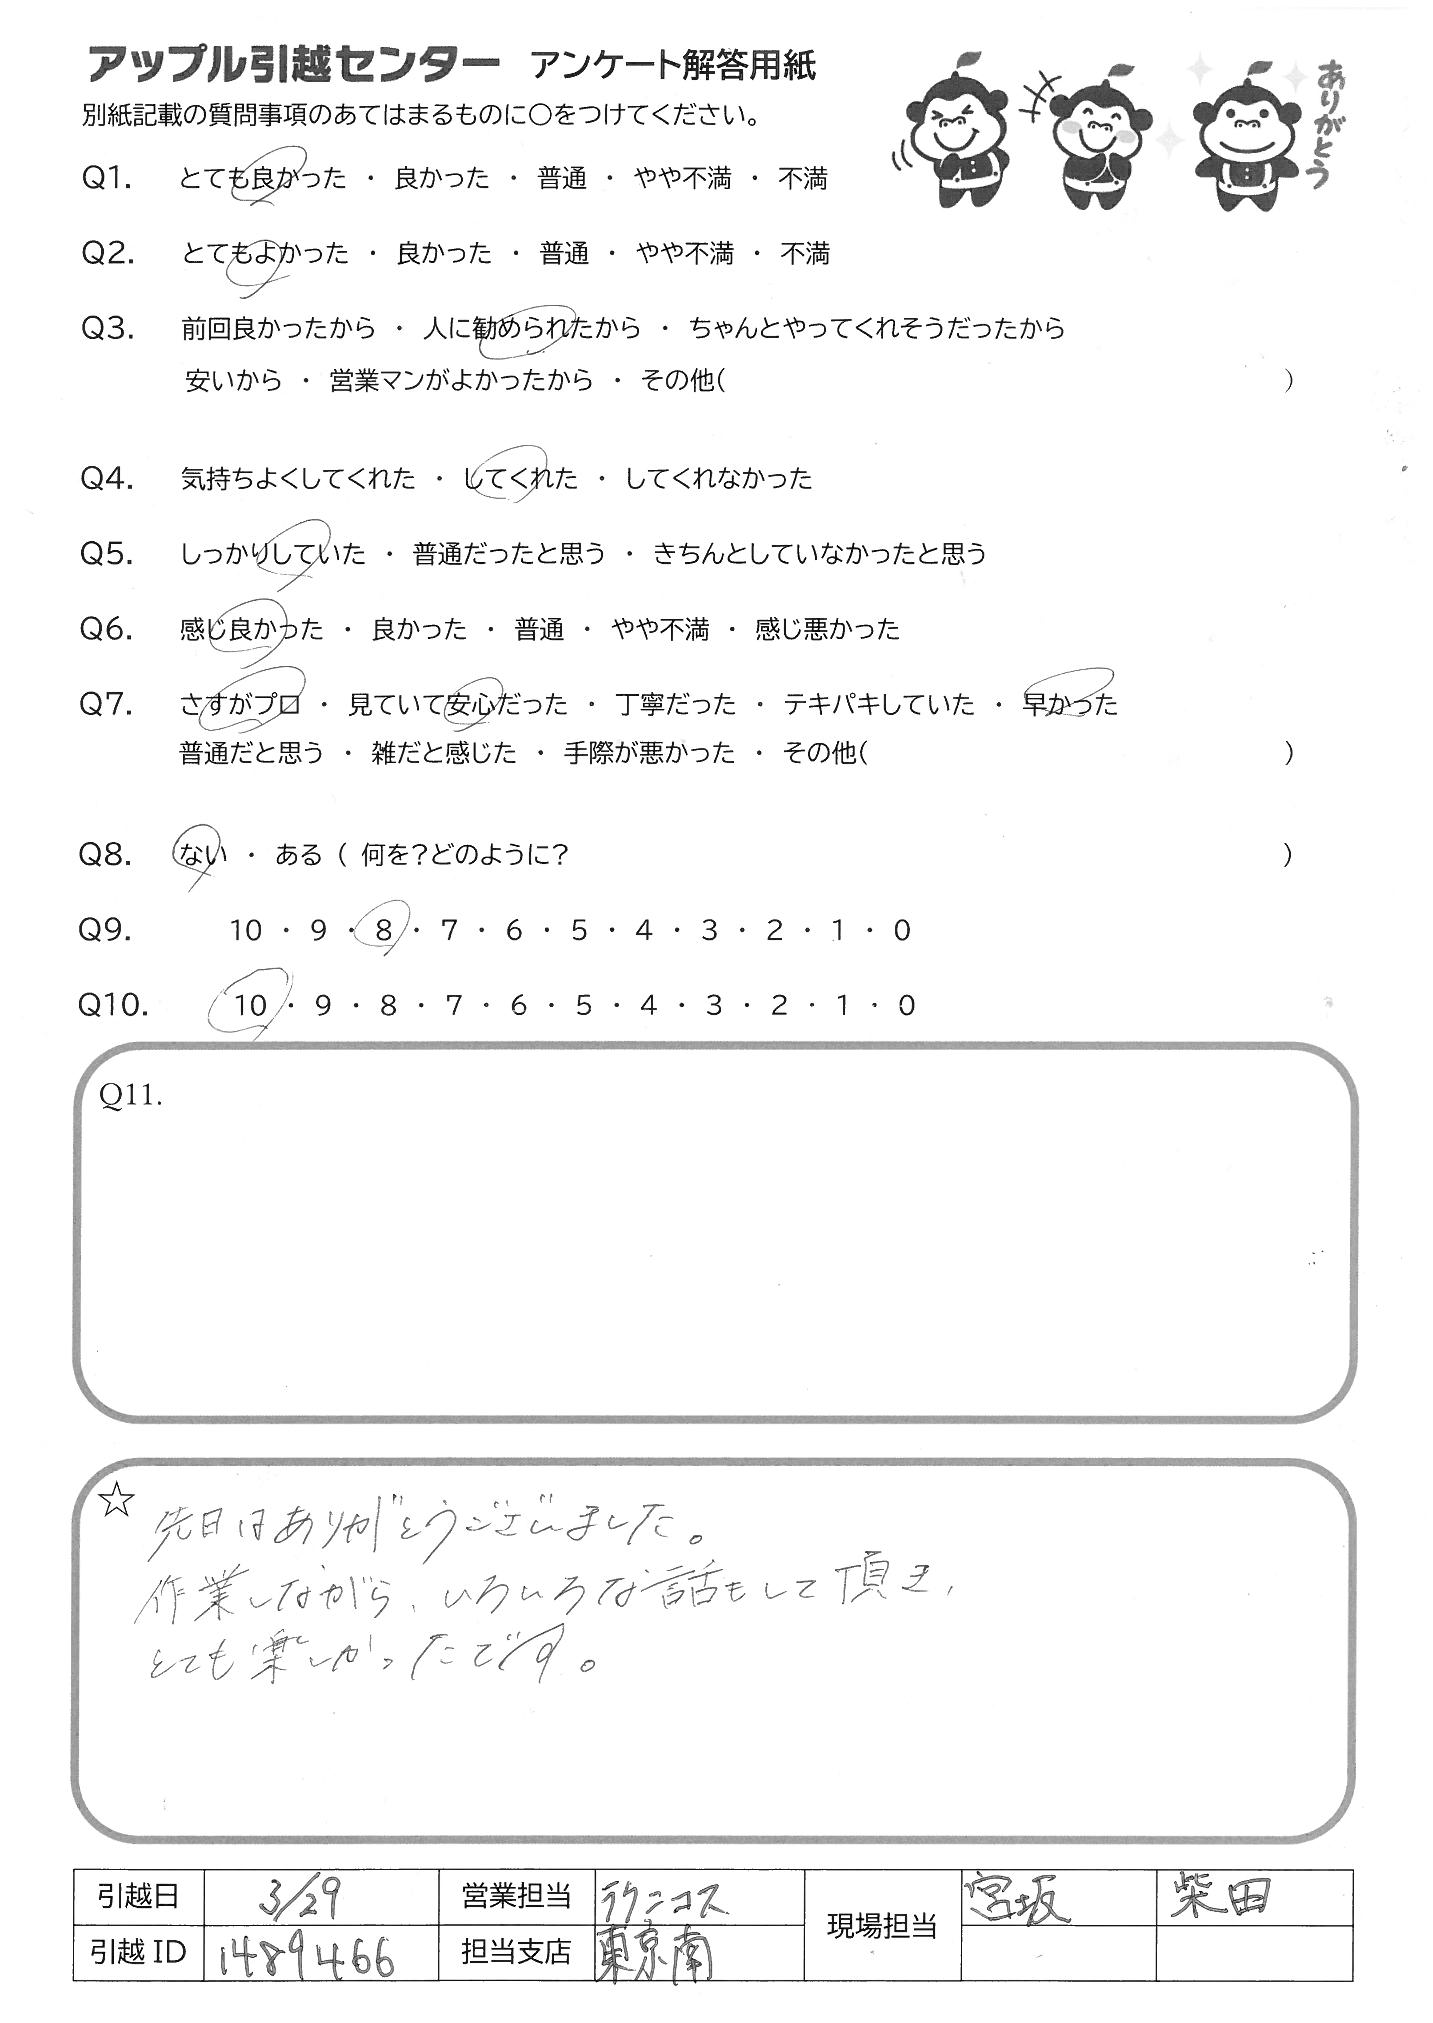 アップル引越センター アンケート解答用紙
別紙記載の質問事項のあてはまるものに〇をつけてください。
ありがとう
Q1. とても良かった ・ 良かった ・ 普通 ・ やや不満 ・ 不満
Q2. とてもよかった ・ 良かった ・ 普通 ・ やや不満 ・ 不満
Q3. 前回良かったから ・ 人に勧められたから ・ ちゃんとやってくれそうだったから
安いから ・ 営業マンがよかったから ・ その他( )
Q4. 気持ちよくしてくれた ・ してくれた ・ してくれなかった
Q5. しっかりしていた ・ 普通だったと思う ・ きちんとしていなかったと思う
Q6. 感じ良かった ・ 良かった ・ 普通 ・ やや不満 ・ 感じ悪かった
Q7. さすがプロ ・ 見ていて安心だった ・ 丁寧だった ・ テキパキしていた ・ 早かった
普通だと思う ・ 雑だと感じた ・ 手際が悪かった ・ その他( )
Q8. ない ・ ある ( 何を?どのように? )
Q9. 10 ・ 9 ・ 8 ・ 7 ・ 6 ・ 5 ・ 4 ・ 3 ・ 2 ・ 1 ・ 0
Q10. 10 ・ 9 ・ 8 ・ 7 ・ 6 ・ 5 ・ 4 ・ 3 ・ 2 ・ 1 ・ 0
Q11.
☆ 先日はありがとうございました。
作業しながら、いろいろな話もして頂き、
とても楽しかったです。
引越日 3/29 営業担当 ラクニコス 現場担当 宮坂 柴田
引越ID 1489466 担当支店 東京南